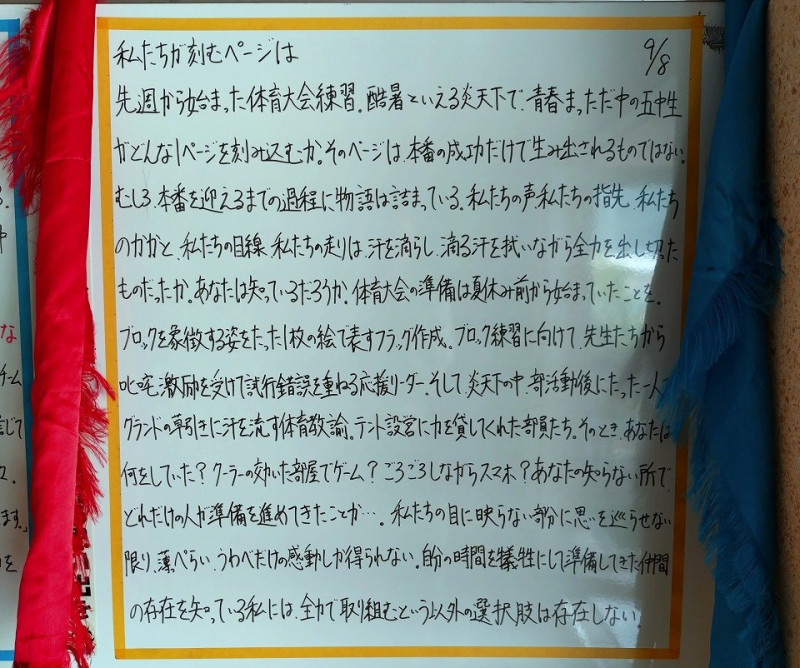 私たちが刻むページは
9/8
先週から始まった体育大会練習。酷暑といえる炎天下で、青春まっただ中の五中生
がどんな1ページを刻み込むか。そのページは、本番の成功だけで生み出されるものではない。
むしろ、本番を迎えるまでの過程に物語は詰まっている。私たちの声、私たちの指先、私たち
のかかと、私たちの目線、私たちの走りは、汗を滴らし、滴る汗を拭いながら全力を出し切った
ものだったか。あなたは知っているだろうか。体育大会の準備は夏休み前から始まっていたことを。
ブロックを象徴する姿をたった1枚の絵で表すフラッグ作成。ブロック練習に向けて、先生たちから
叱咤激励を受けて試行錯誤を重ねる応援リーダー。そして、炎天下の中、部活動後にたった一人で
グランドの草引きに汗を流す体育教諭。テント設営に力を貸してくれた部員たち。そのとき、あなたは
何をしていた？クーラーの効いた部屋でゲーム？ごろごろしながらスマホ？あなたの知らない所で、
どれだけの人が準備を進めてきたことか…。私たちの目に映らない部分に思を巡らせない
限り、薄ぺらい、うわべだけの感動しか得られない。自分の時間を犠牲にして準備してきた仲間
の存在を知っている私には、全力で取り組むという以外の選択肢は存在しない